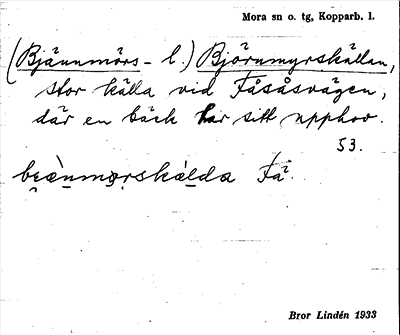 Mora sn o. tg, Kopparb. l.
(Bjännmörs- l.) Björnmyrskällan,
stor källa vid Fåsåsvägen,
där en bäck har sitt upphov.
53.
Få.
Bror Lindén 1933